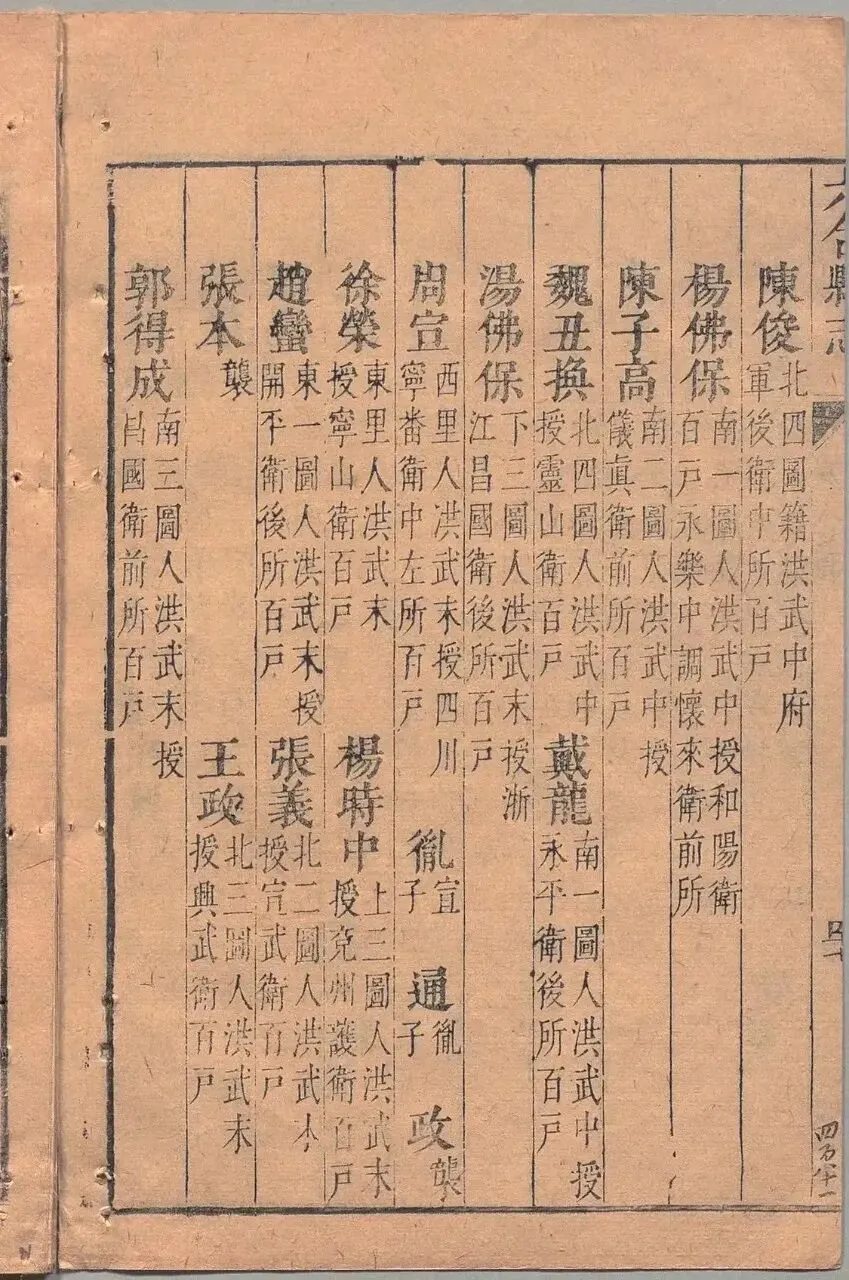 六合縣志
陳俊 北四圖籍洪武中府軍後衛中所百戶
楊佛保 南一圖人洪武中授和陽衛百戶永樂中調懷來衛前所
陳子高 南二圖人洪武中授儀真衛前所百戶
魏丑換 北四圖人洪武中授靈山衛百戶 戴龍 南一圖人洪武中授永平衛後所百戶
湯佛保 下三圖人洪武末授浙江昌國衛後所百戶
周宣 西里人洪武末授四川寧番衛中左所百戶 胤 宣子 通 胤子 政 襲
徐榮 東里人洪武末授寧山衛百戶 楊時中 上三圖人洪武末授兗州護衛百戶
趙蠻 東一圖人洪武末授開平衛後所百戶 張義 北二圖人洪武末授宣武衛百戶
張本 襲 王政 北三圖人洪武末授興武衛百戶
郭得成 南三圖人洪武末授昌國衛前所百戶